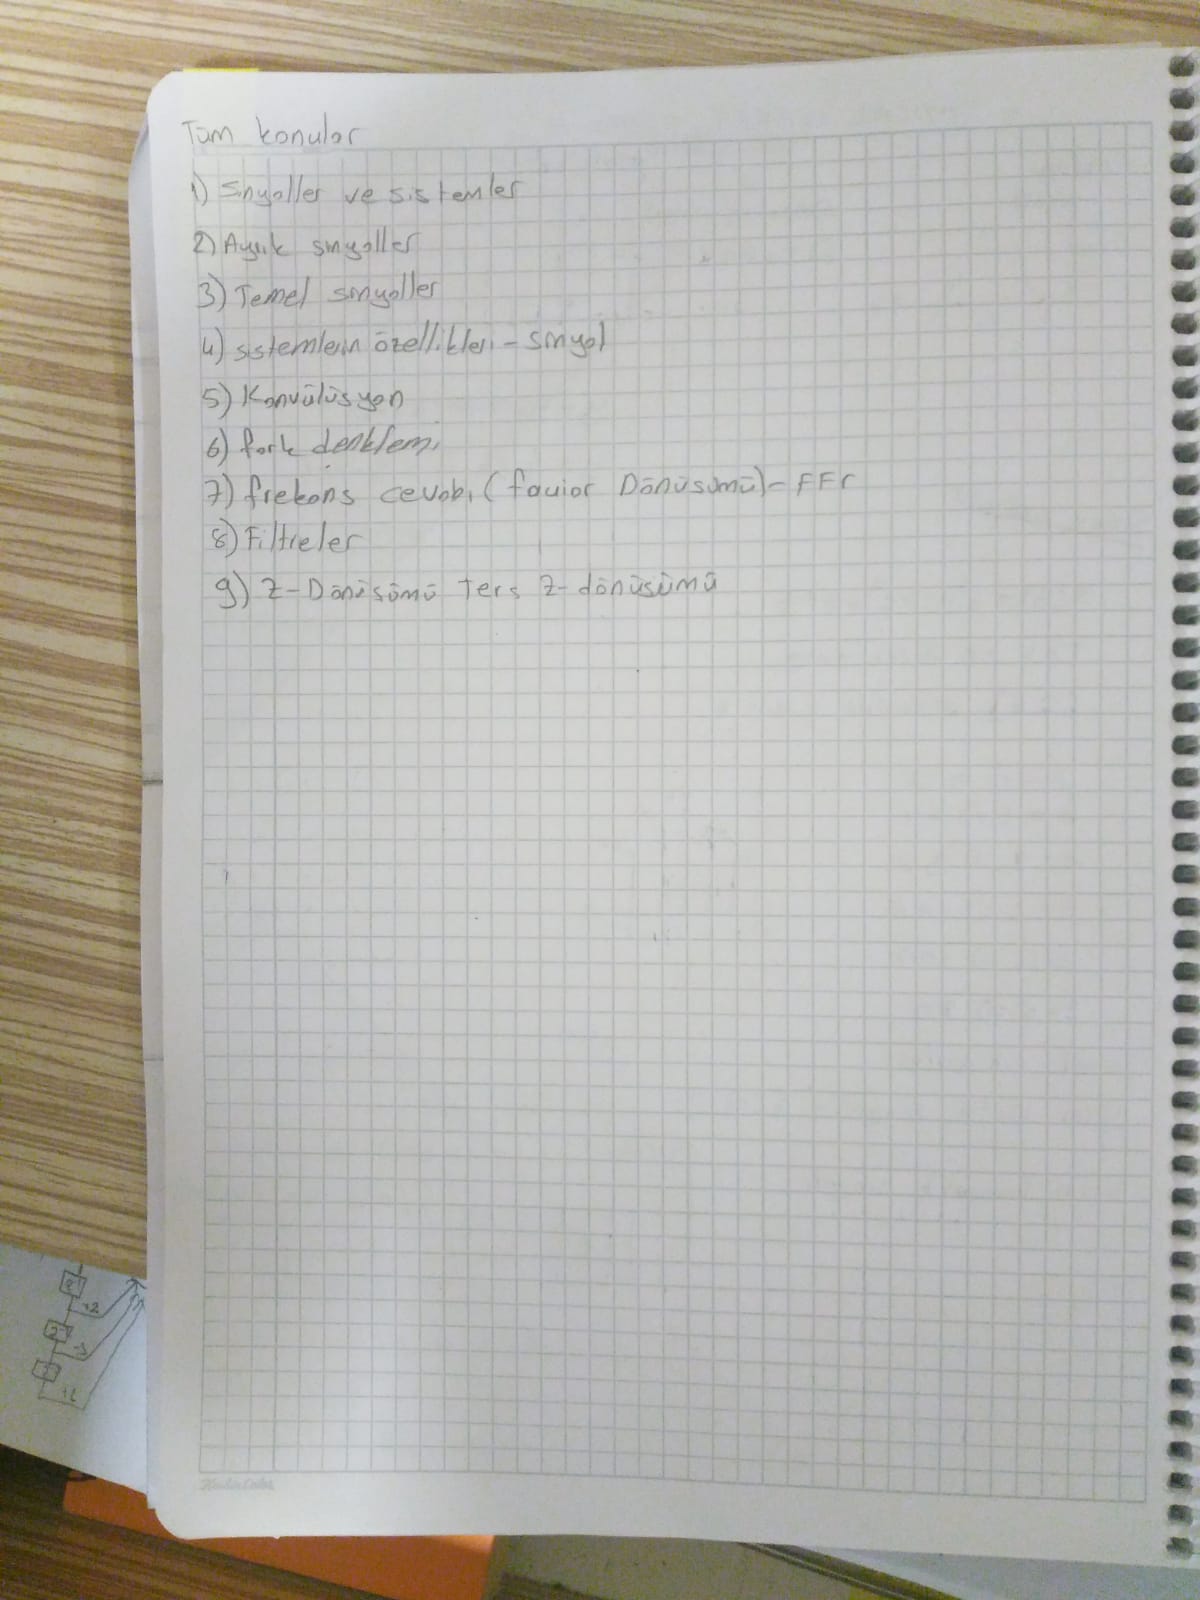 Tüm konular
1) Sinyaller ve sistemler
2) Ayrık sinyaller
3) Temel sinyaller
4) sistemlerin özellikleri - Sinyal
5) Konvülüsyon
6) fark denklemi
7) frekans cevabı (fouior Dönüsümü) - FFr
8) Filtreler
9) Z-Dönüsümü Ters Z-dönüsümü